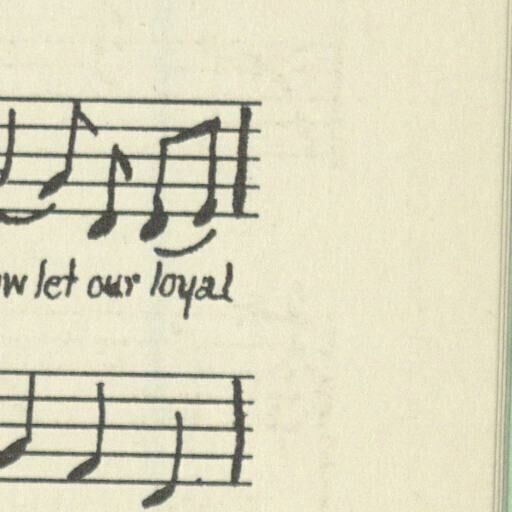 let our loyal